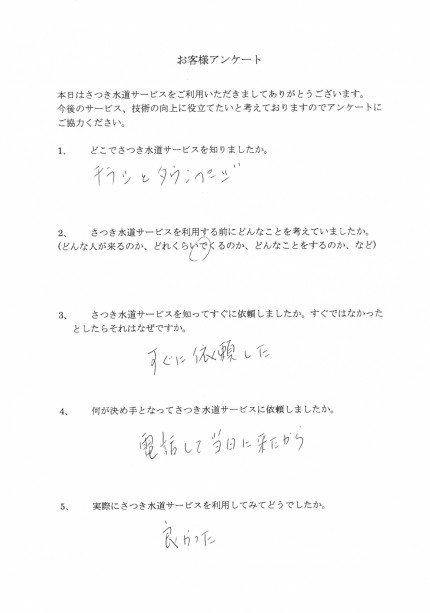 お客様アンケート
本日はさつき水道サービスをご利用いただきましてありがとうございます。
今後のサービス、技術の向上に役立てたいと考えておりますのでアンケートに
ご協力ください。
1、 どこでさつき水道サービスを知りましたか。
チラシとタウンページ
2、 さつき水道サービスを利用する前にどんなことを考えていましたか。
(どんな人が来るのか、どれくらいでくるのか、どんなことをするのか、など)
3、 さつき水道サービスを知ってすぐに依頼しましたか。すぐではなかった
としたらそれはなぜですか。
すぐに依頼した
4、 何が決め手となってさつき水道サービスに依頼しましたか。
電話して当日に来たから
5、 実際にさつき水道サービスを利用してみてどうでしたか。
良かった